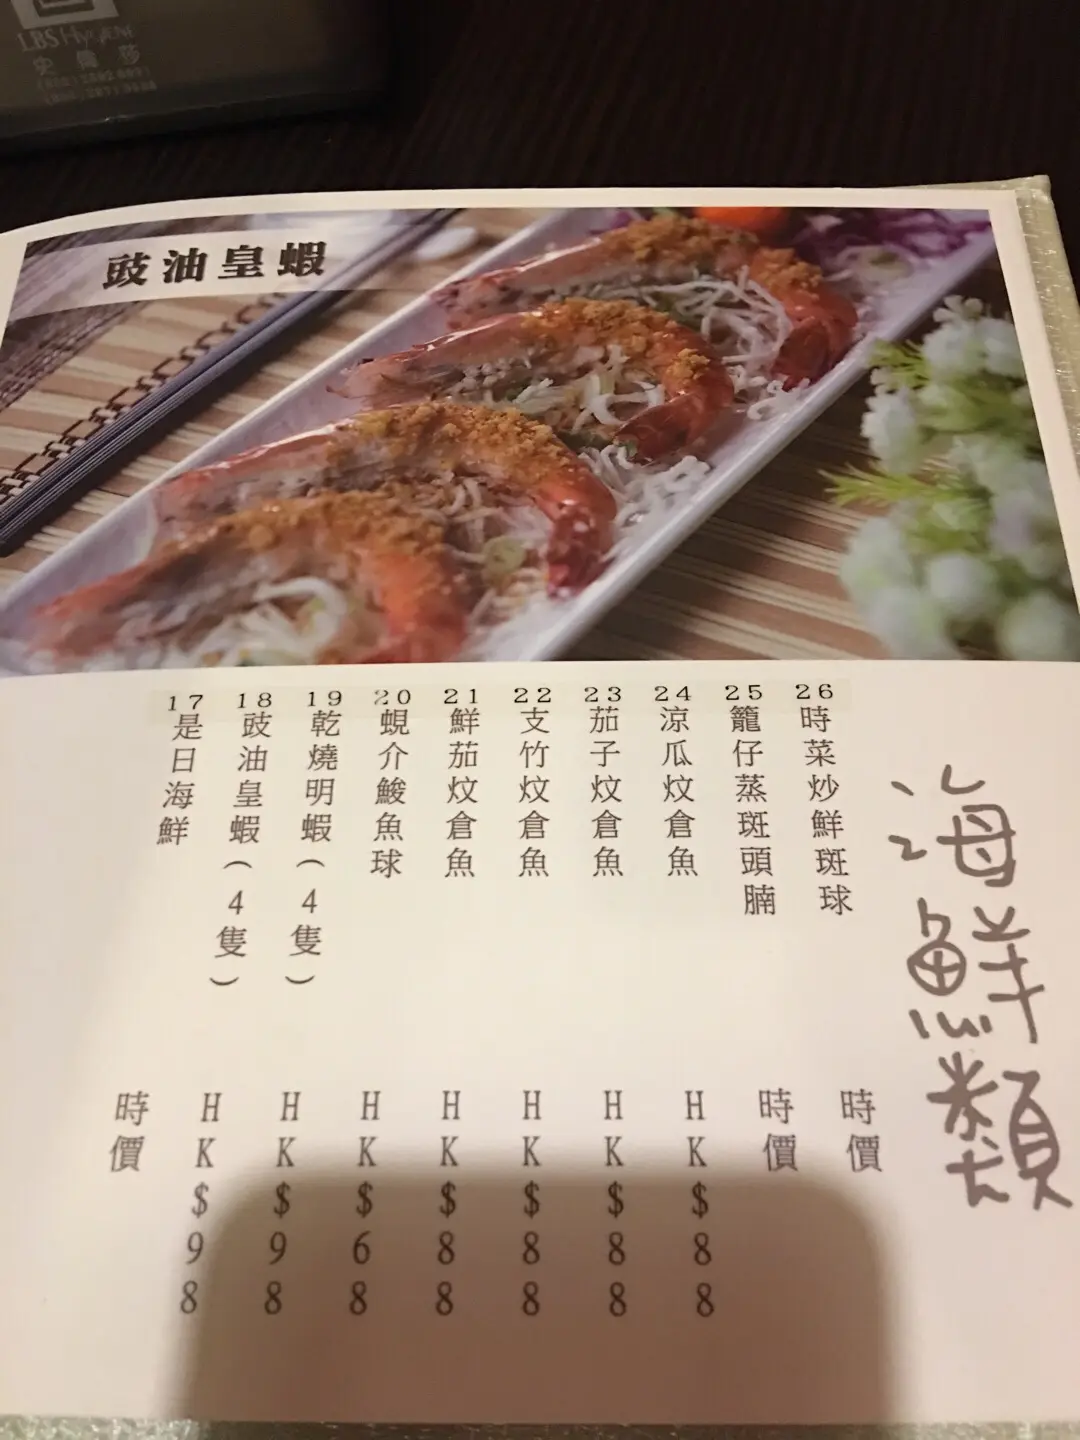 LBS Hygien
史偉莎
豉油皇蝦
海鮮類
26 時菜炒鮮斑球 時價
25 籠仔蒸斑頭腩 時價
24 涼瓜炆倉魚 HK$88
23 茄子炆倉魚 HK$88
22 支竹炆倉魚 HK$88
21 鮮茄炆倉魚 HK$88
20 蜆介鮻魚球 HK$68
19 乾燒明蝦(4隻) HK$98
18 豉油皇蝦(4隻) HK$98
17 是日海鮮 時價